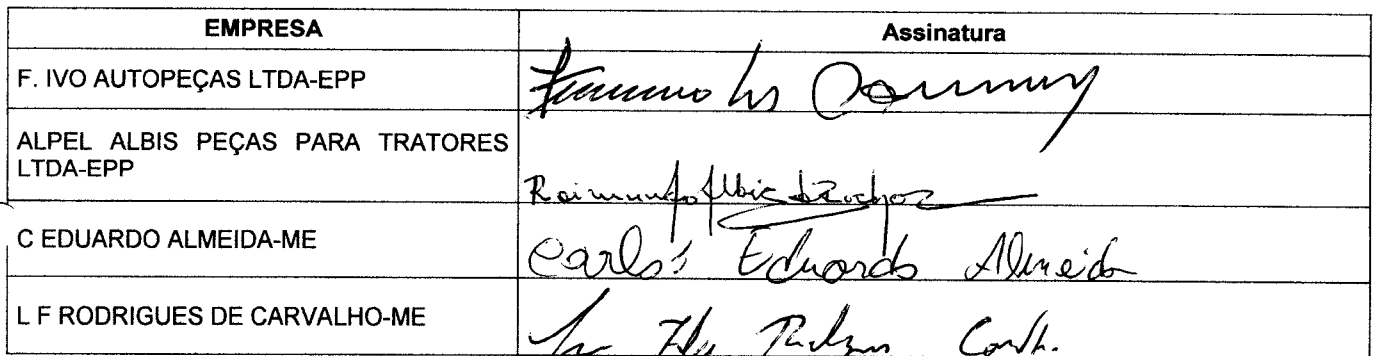 EMPRESA Assinatura
F. IVO AUTOPEÇAS LTDA-EPP
ALPEL ALBIS PEÇAS PARA TRATORES
LTDA-EPP
Raimundo Albis
C EDUARDO ALMEIDA-ME Carlos Eduardo Almeida
L F RODRIGUES DE CARVALHO-ME